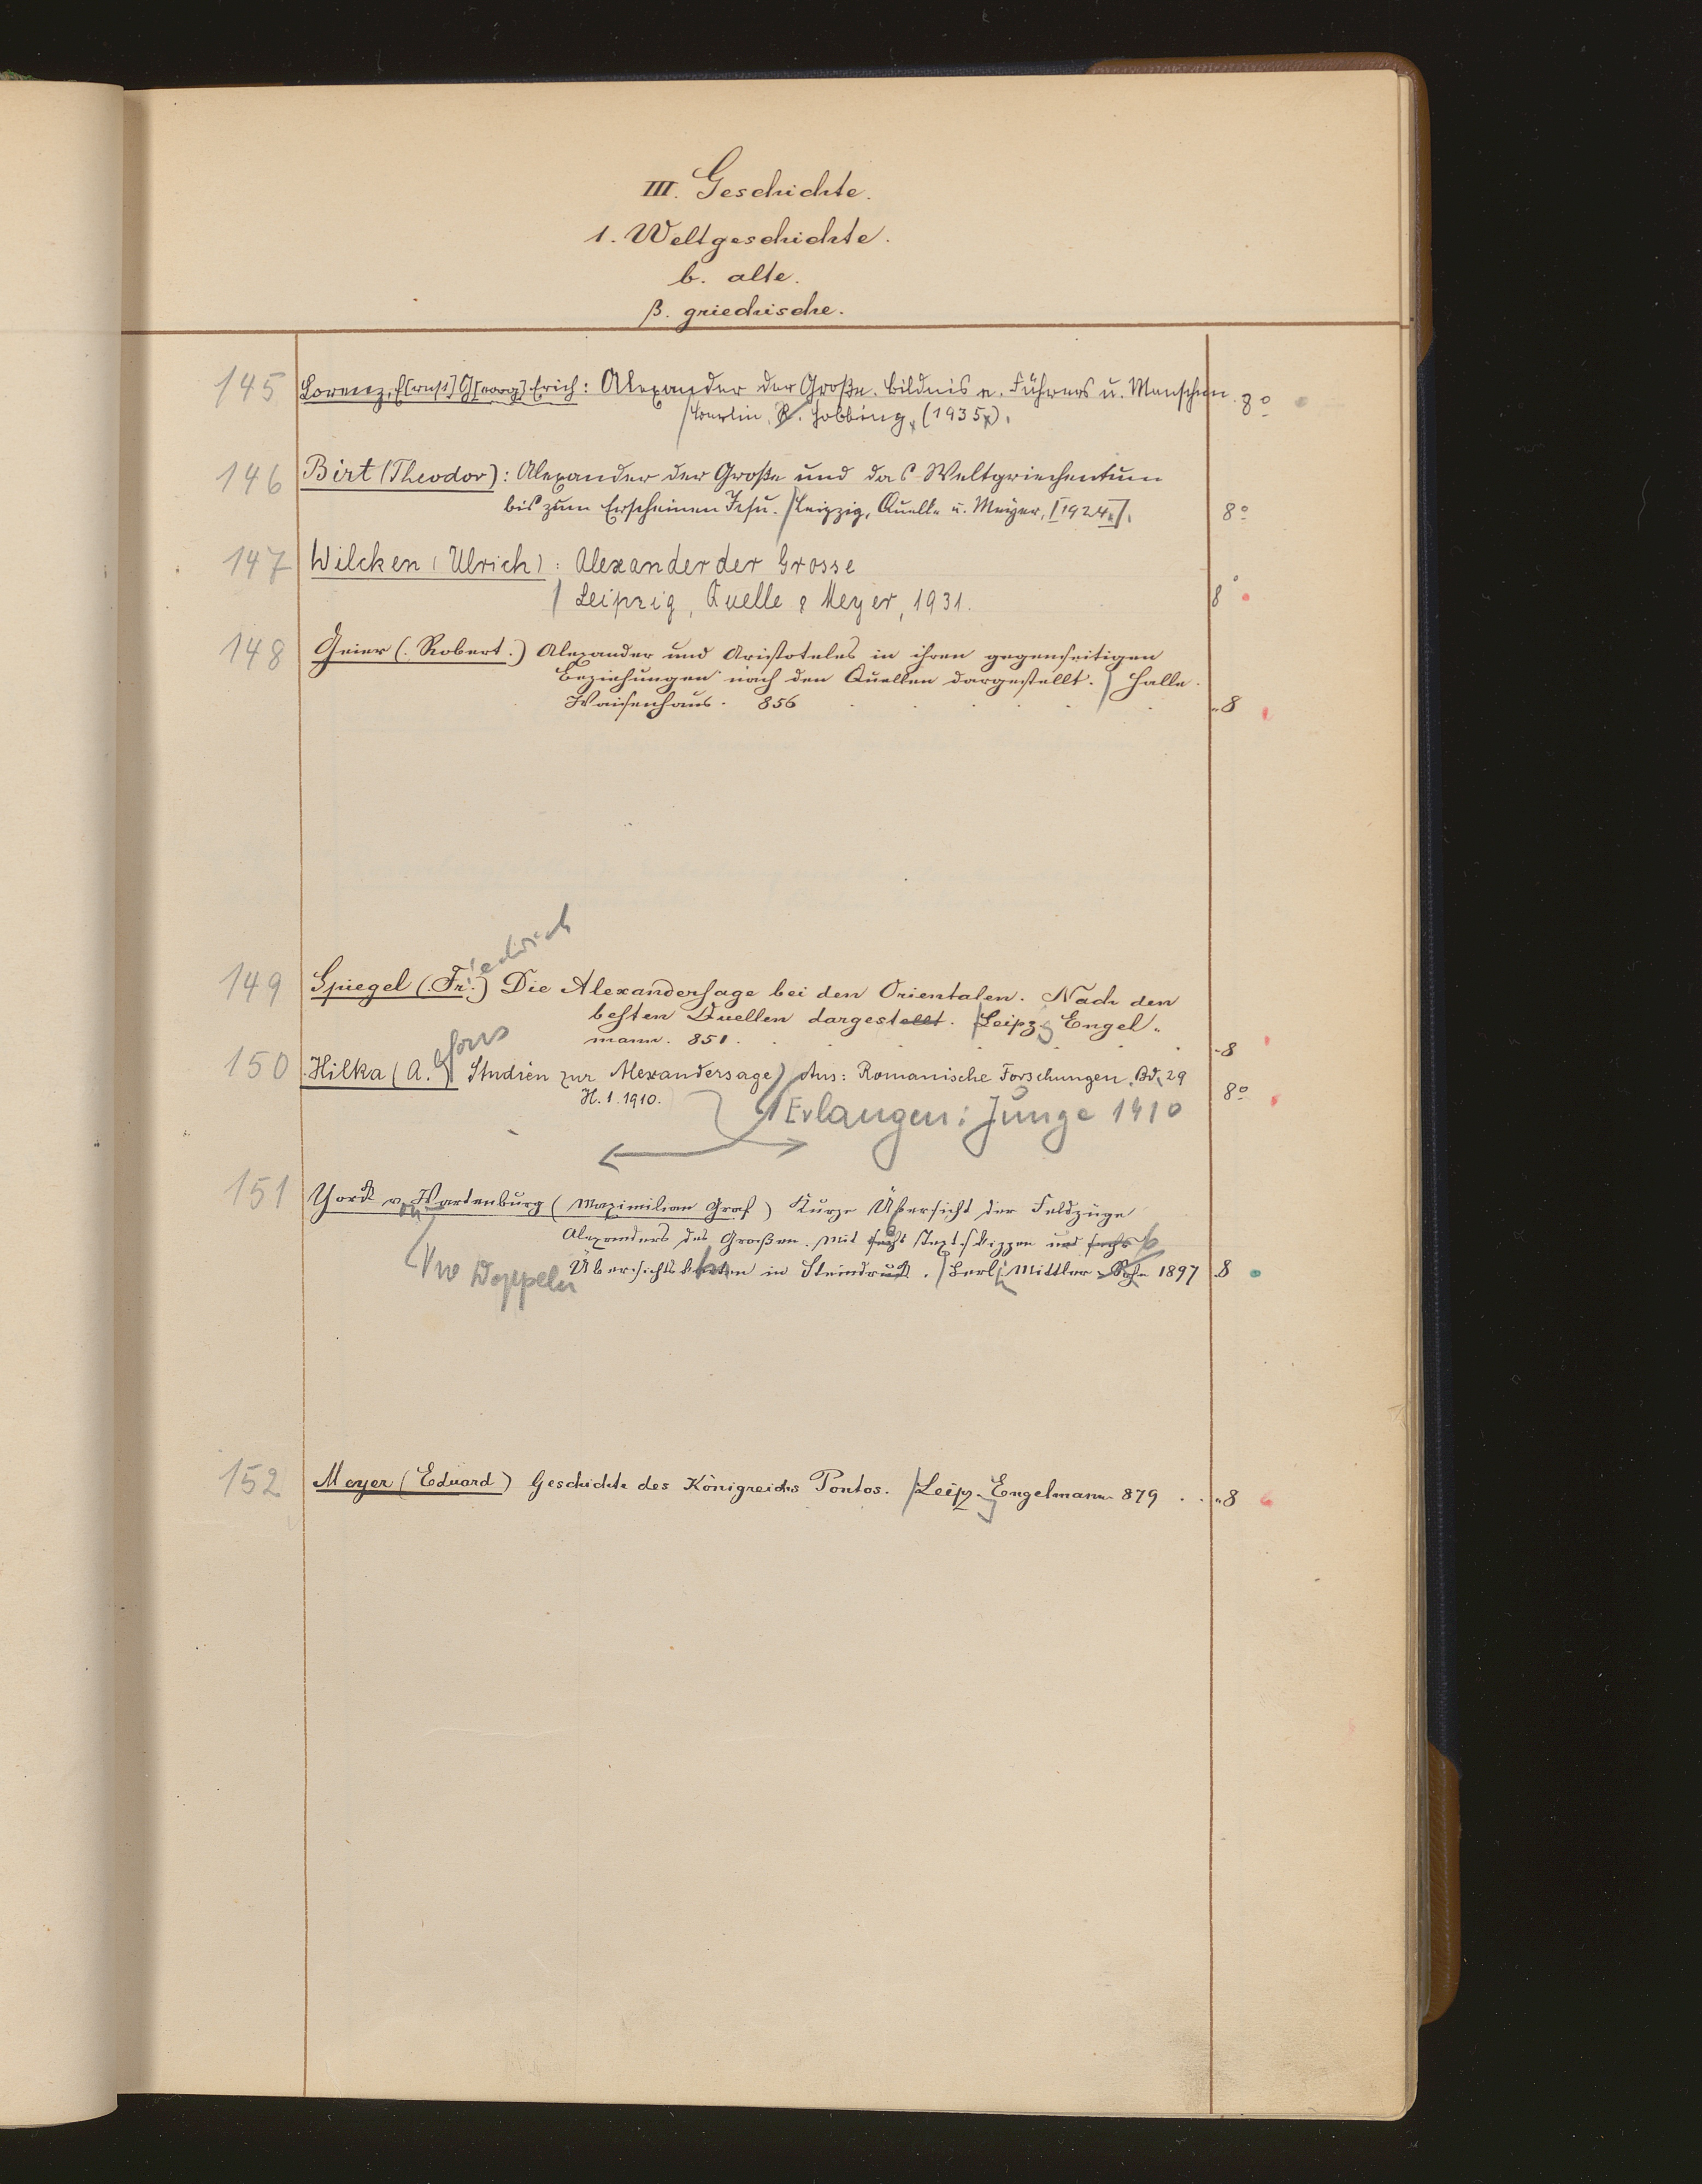 III. Geschichte.
1. Weltgeschichte.
b. alte.
β. griechische.
145 Lorenz, E[rnst] G[eorg] Erich: Alexander der Große. Bildnis e. Führers u. Menschen. 8°
/Berlin, R. Hobbing, (1935).
146 Birt (Theodor): Alexander der Große und das Weltgriechentum
bis zum Erscheinen Jesu. /Leipzig, Quelle u. Meyer, [1924.]. 8°
147 Wilcken (Ulrich): Alexander der Grosse
/ Leipzig, Quelle & Meyer, 1931. 8°
148 Geier (. Robert.) Alexander und Aristoteles in ihren gegenseitigen
Beziehungen nach den Quellen dargestellt. / Halle.
Waisenhaus. 856 . . . . . „8
149 Spiegel (. Friedrich.) Die Alexandersage bei den Orientalen. Nach den
besten Quellen dargestellt. /Leipzg Engel„
mann. 851. . . . . . „8
150 Hilka (A.lfons) Studien zur Alexandersage) Aus: Romanische Forschungen. Bd. 29
H. 1. 1910. 8°
/Erlangen: Junge 1910
151 Yorck von Wartenburg (Maximilian Graf) Kurze Übersicht der Feldzüge
Alexanders des Großen. Mit Textskizzen und sechs
Übersichtskarten in Steindruck. /Berlin Mittler Sohn 1897 8
Vw Doppeln
152 Meyer (Eduard) Geschichte des Königreichs Pontos. /Leipzg Engelmann 879 . . „8